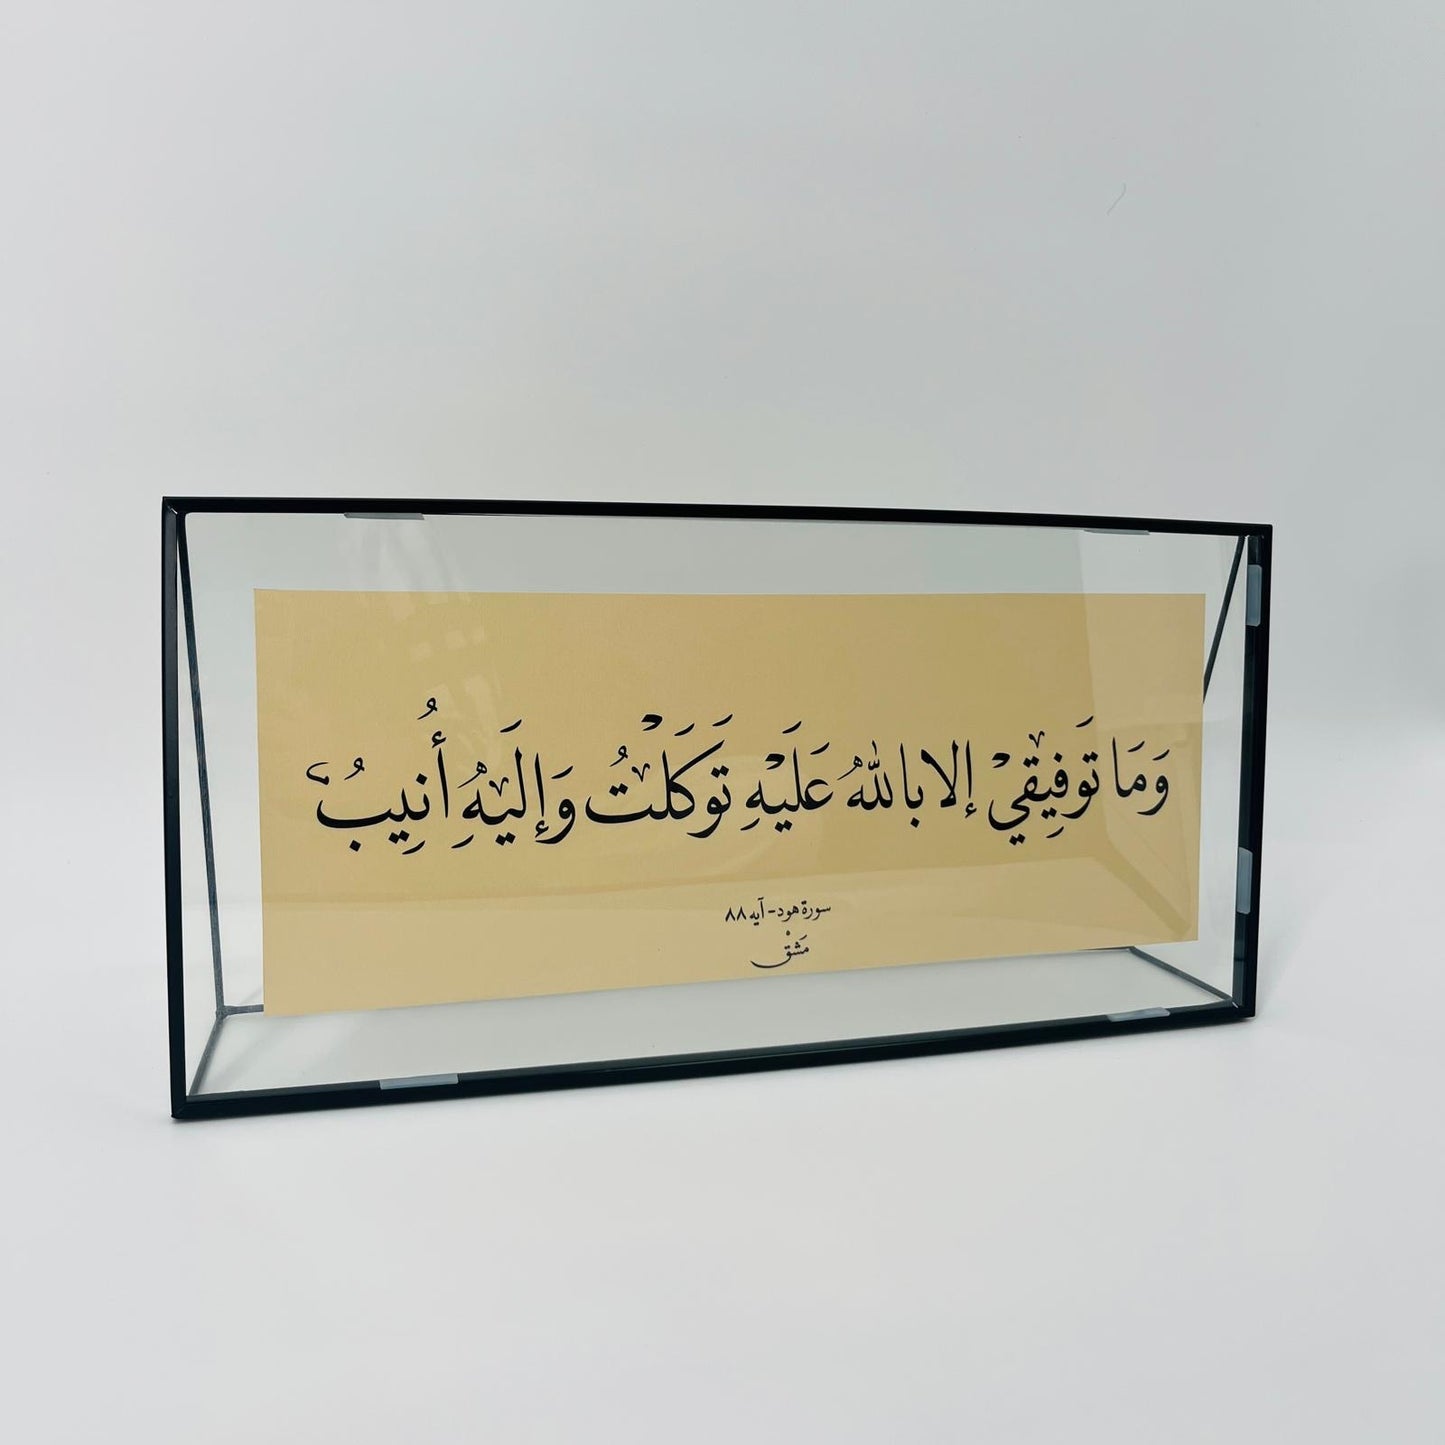 وَمَا تَوفِيقِيْ إلا بالله عَلَيْهِ تَوَكَلْتُ وَإِلَيَهِ أُنِيبُ
سورة هود - آيه ٨٨
مَشقْ